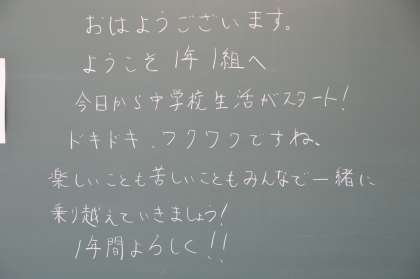 おはようございます。
ようこそ1年1組へ
今日から中学校生活がスタート!
ドキドキ、ワクワクですね。
楽しいことも苦しいこともみんなで一緒に
乗り越えていきましょう!
1年間よろしく!!